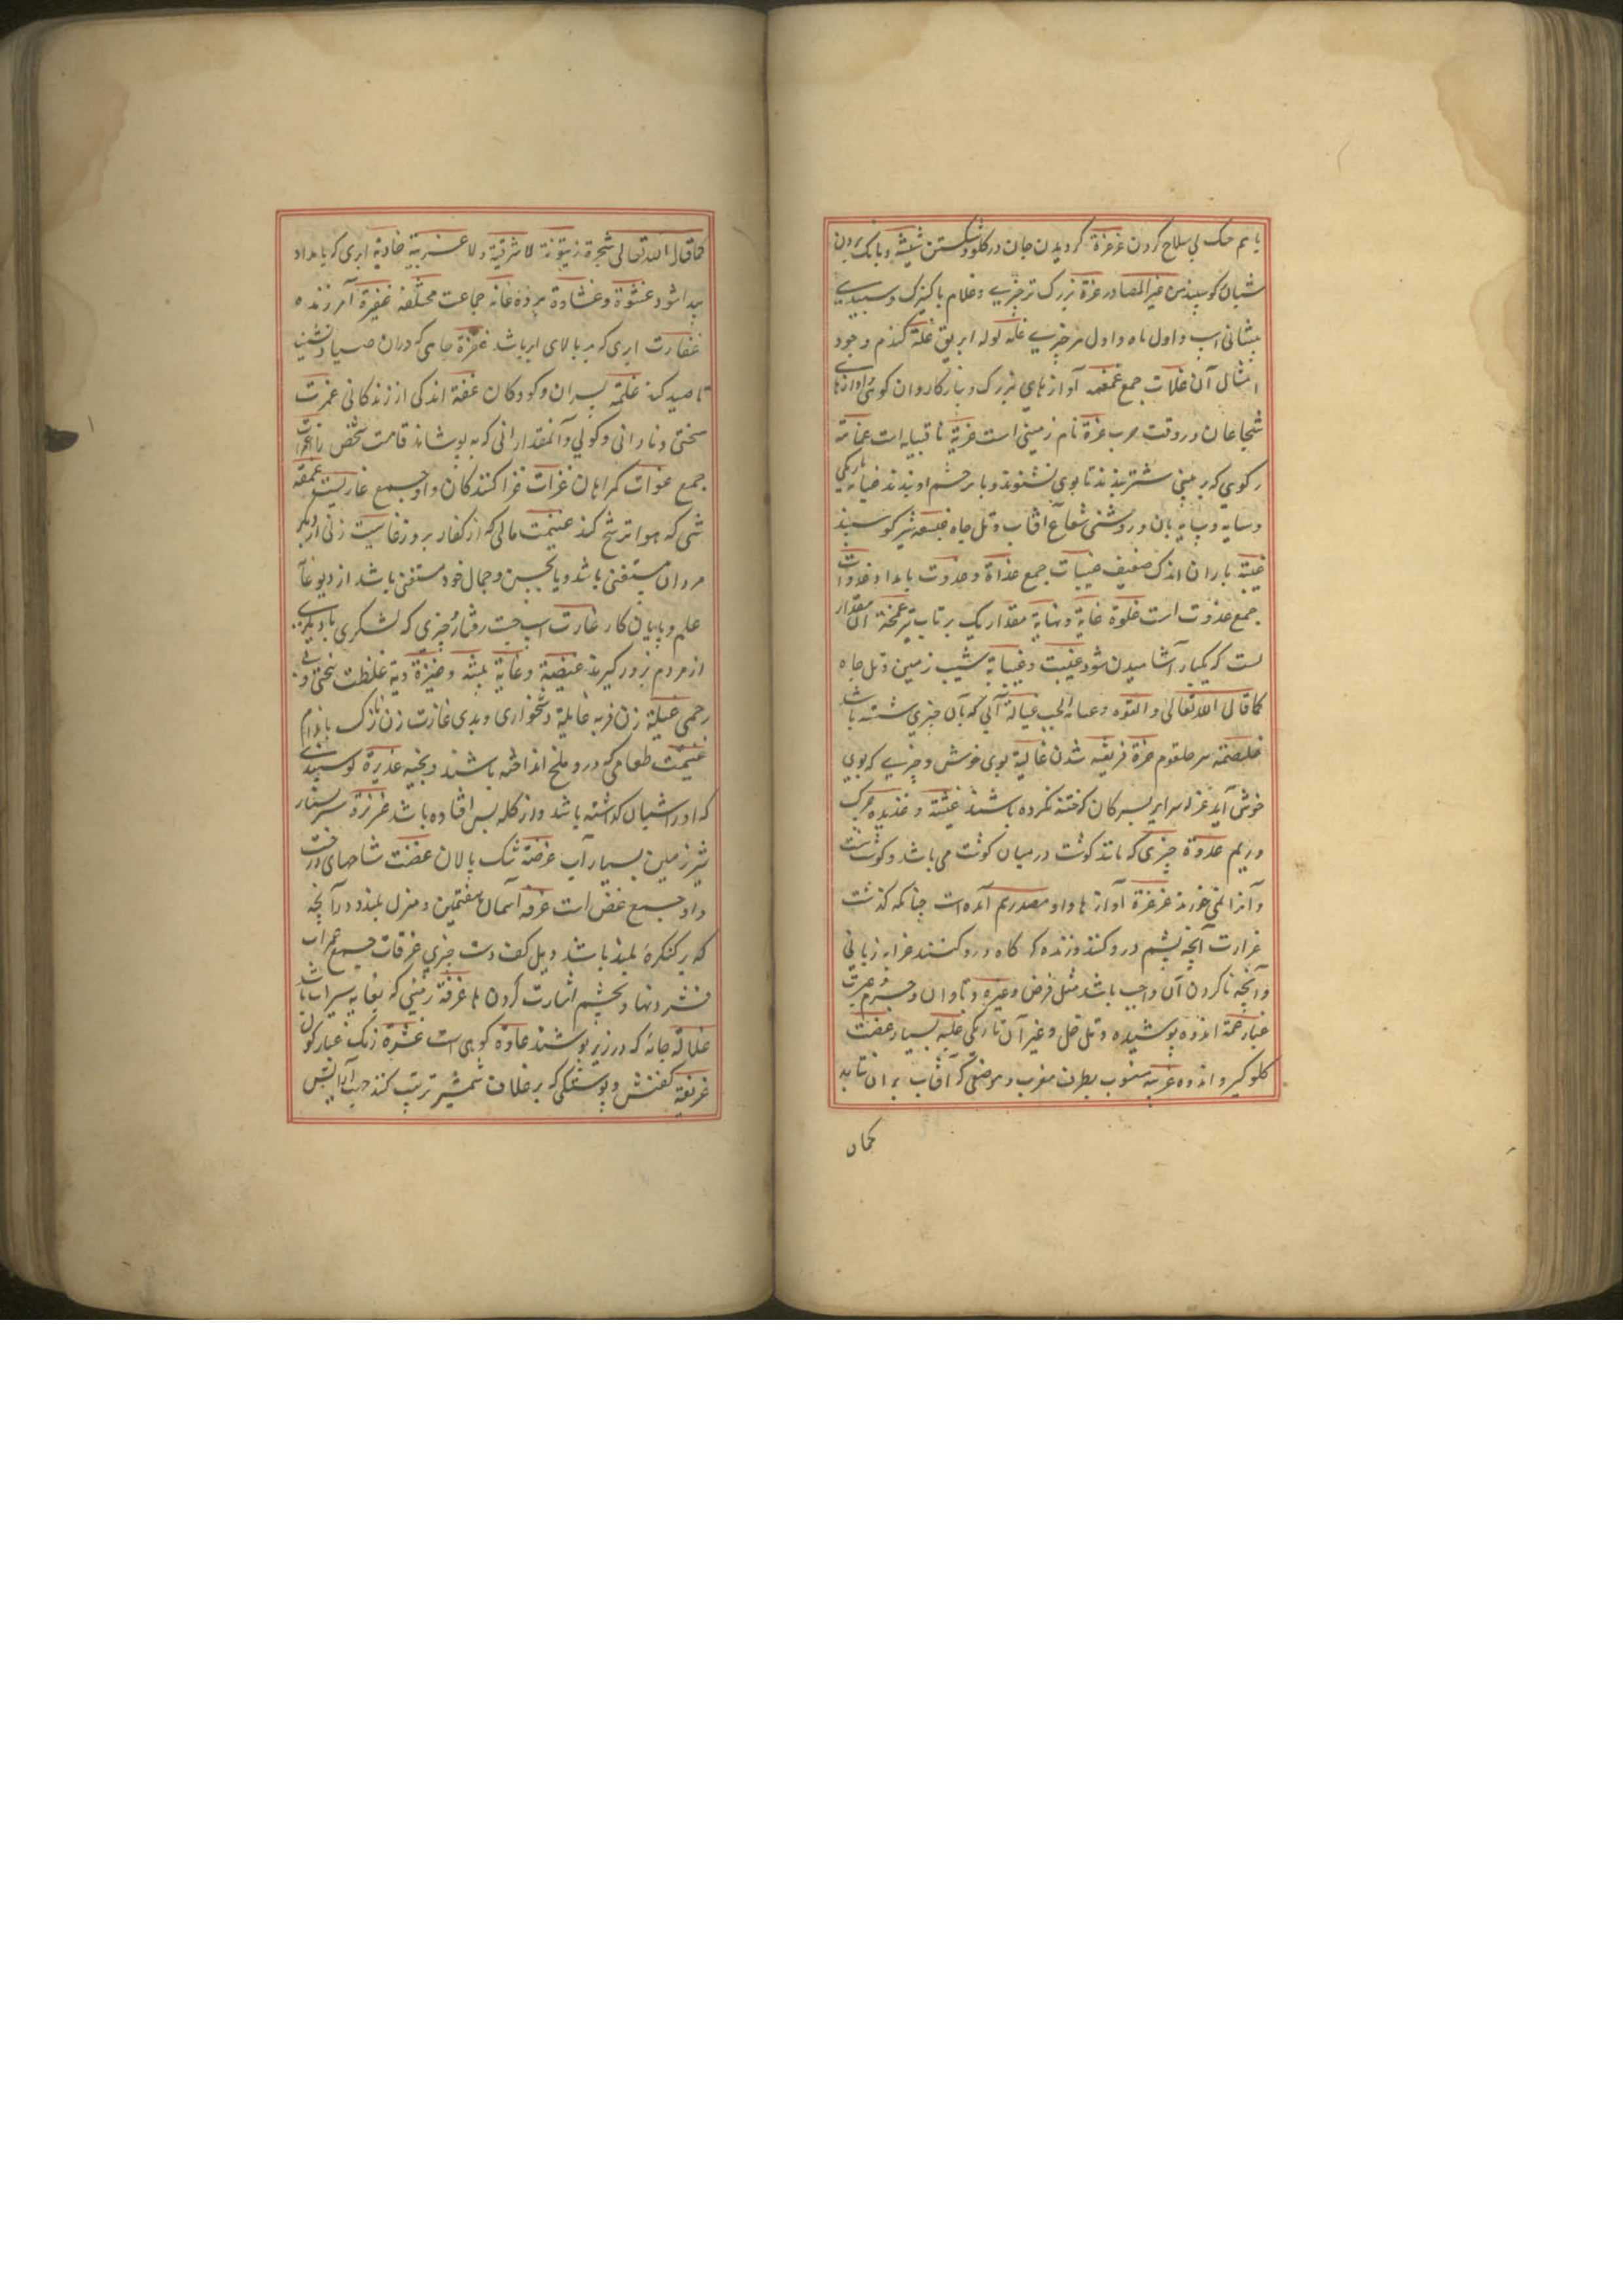 با هم جنک بی سلاح کردن غرغرة کردیدن جان در کلو و شکستن شیشه و بانک بردن
شبان کوسپند من غیر المصادر غرة بزرک تر چیزی و غلام یا کنیزک و سپیدی
پیشانی اسب و اول ماه و اول هر چیزی غلة لوله ابریق غلة کندم و جو و
امثال آن غلات جمع غمغمه آوازهای بزرک و
شجاعان در وقت حرب غزة نام زمینی است غزیة نا قبیله است غمامة
رکویی که بر بینی شتر بندند تا بوی نشنوند و یا بر چشم او بندند غیایة تاریکی
و سایه و سایه بان و روشنی شعاع آفتاب و تل چاه غبیبه شیر کوسپند
غبیة باران اندک ضعیف غبیات جمع غداة و غدوت بامداد غدوات
جمع غدوت است غلوة غایة و نهایة مقدار یک پرتاب تیر غمجة آن مقدار
است که یکبار آشامیدن شود غیبت و غیابة شیب زمین و تل چاه
کما قال الله تعالی و القوه و غیابة الجب غسالة آبی که بآن چیزی شسته باشد
غلصمة سر حلقوم غرة فریفته شدن غالیة بوی خوش و چیزی که بوی
خوش آید غرله سر ایر پسرکان که ختنه نکرده باشند غثیثة و غذیذه چرک
و ریم غدوة چیزی که مانند کوشت در میان کوشت می باشد و کوشت نیست
و آنرا نمی خورند غرغرة آوازها و او مصدر هم آمده است چنانکه کذشت
غرارت آنچه پشم درو کنند و زنده که کاه درو کنند غرامه زیانی
و آنچه ناکردن آن واجب باشد مثل قرض و غیره و تاوان و
غبار غمة اندوه پوشیده و تل خل و غیر آن تاریکی غلبه بسیار غصت
کلوکیر و اندوه غربیة منسوب بطرف مغرب و موضعی که آفتاب بر آن تابد
کما ق
کما قال الله تعالی شجرة زیتونة لا شرقیة و لا غربیة غادیة ابری که بامداد
پیدا شود غشوة و غشاوة پرده غاثه جماعت مختلفه غفیرة آمرزنده
غفارت ابری که بر بالای ابر باشد غرزة جامی که در آن صیاد نشیند
تا صید کند غلمة پسران و کودکان غفة اندکی از زندکانی غمرت
سختی و نادانی و کولی و آنمقدار آبی که بپوشاند قامت شخص را غمرات
جمع غوات کمراهان غزات غزا کنندکان و او جمع غازیست غمقة
شبی که هوا ترشح کند غنیمت مالی که از کفار برور غانیت زنی که از دیکر
مردان مستغنی باشد و یا بحسن و جمال خود مستغنی باشد از زیور غایة
علم و پایان کار غارت اسب جست رفتار و چیزی که لشکری یا دیکری
از مردم بزور کیرند غیضة و غابة بیشه و غیرة دیة غلظت سختی و بی
رحمی غیلة زن فربه غایلة دشخواری و بدی غادت زن نازک با اندام
غیثمت طعامی که درو ملخ انداخته باشند و پخته غدیرة کوسپندی
که او را شبان کذاشته باشد و از کله پس افتاده باشد غزیرة
شیر زمین بسیار آب غرضة تنک پالان غصنت شاخهای درخت
و او جمع غصن است غرفه آسمان هفتمین و منزل بلند و در آنچه
که بر کنکره بلند باشد و بل کف دست چیزی غرفات جمع غمزات
فشردنها و بچشم اشارت کردن ها غرقة زمینی که بغایه سیراب باشد
غلالة جامه که در زیر پوشند غاوة کوهی است غبثرة رنک غبار کون
غریفة کفش و پوستکی که بر غلاف شمشیر ترتیب کنند جهت آرایش